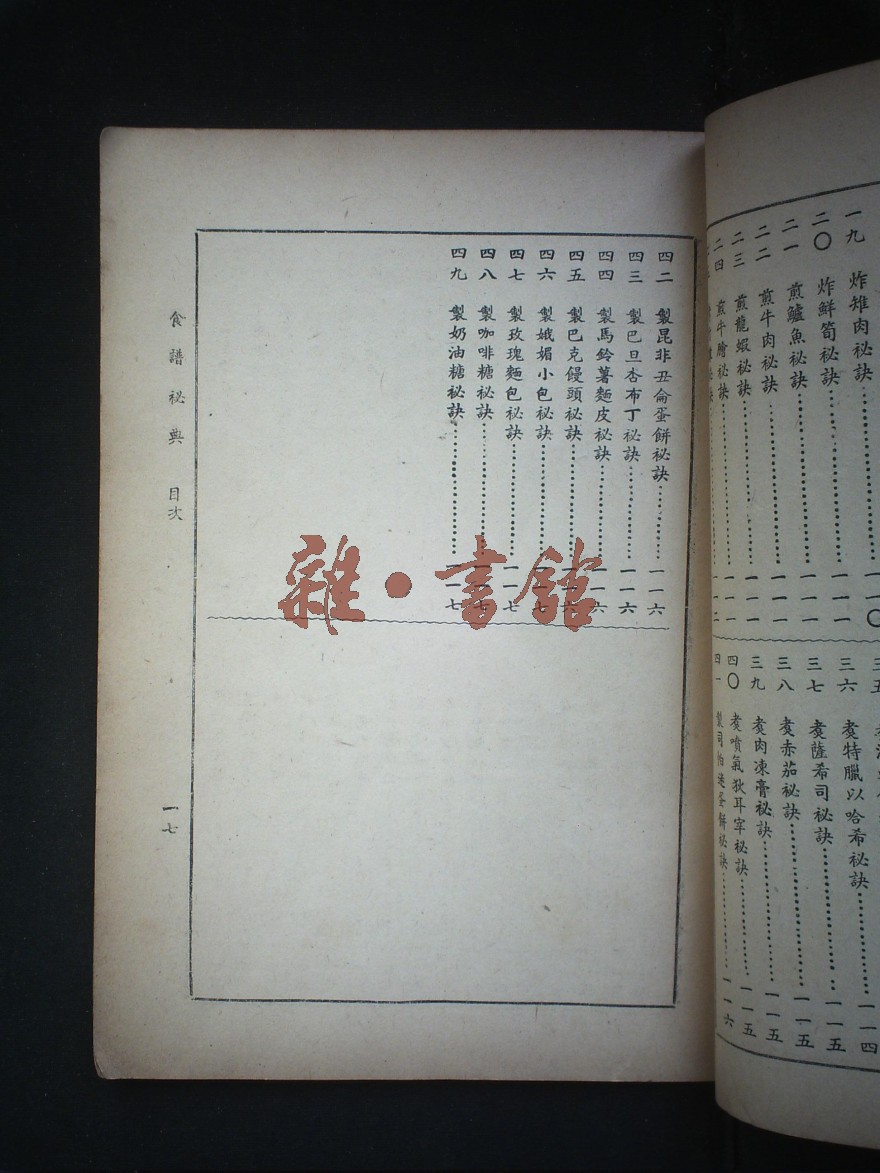 一九　炸雉肉秘訣⋯⋯一一〇
二〇　炸鮮筍秘訣⋯⋯一一一
二一　煎鱸魚秘訣⋯⋯一一一
二二　煎牛肉秘訣⋯⋯一一一
二三　煎龍蝦秘訣⋯⋯一一一
二四　煎牛膾秘訣⋯⋯一一二
三五
三六　煑特臘以哈希秘訣⋯⋯一一四
三七　煑薩希司秘訣⋯⋯一一五
三八　煑赤茄秘訣⋯⋯一一五
三九　煑肉凍膏秘訣⋯⋯一一五
四〇　煑噴氣狄耳宰秘訣⋯⋯一一五
四一　製司怕送蛋餅秘訣⋯⋯一一六
四二　製昆非丑侖蛋餅秘訣⋯⋯一一六
四三　製巴旦杏布丁秘訣⋯⋯一一六
四四　製馬鈴薯麵皮秘訣⋯⋯一一六
四五　製巴克饅頭秘訣⋯⋯一一六
四六　製娥媚小包秘訣⋯⋯一一七
四七　製玫瑰麵包秘訣⋯⋯一一七
四八　製咖啡糖秘訣⋯⋯一一七
四九　製奶油糖秘訣⋯⋯一一七
食譜秘典　目次
一七
雜·書館